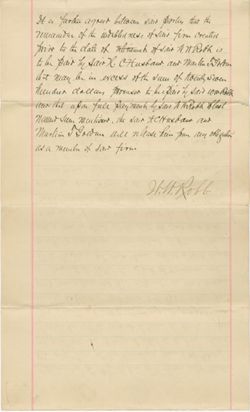 It is further agreed between said parties that the
remainder of the indebtedness of said firm created
prior to the date of retirement of said W W Robb is
to be paid by said H. C Husband and Martin T Gordon
that may be in excess of the sum of
hundred dollars promised to be paid by said
and that upon full payment by said W W Robb of last
named sum mentioned, the said H C Husband and
Martin T Gordon will release him from any obligation
as a member of said firm
W. W. Robb